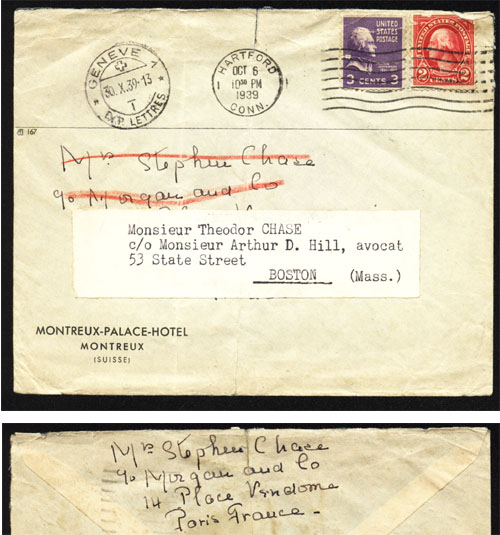 GENEVE 1
30.X.39-13
T
EXP. LETTRES
HARTFORD
OCT 6
1 10³⁰ PM
1939
CONN.
UNITED
STATES
POSTAGE
3 CENTS 3
UNITED STATES POSTAGE
2 2
167
Mrs Stephen Chase
c/o Morgan and Co
Monsieur Theodor CHASE
c/o Monsieur Arthur D. Hill, avocat
53 State Street
BOSTON (Mass.)
MONTREUX-PALACE-HOTEL
MONTREUX
(SUISSE)
Mrs Stephen Chase
c/o Morgan and Co
14 Place Vendome
Paris France -